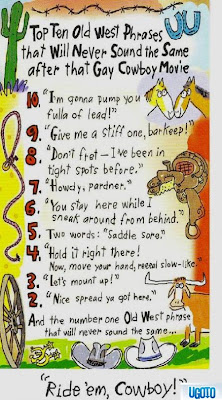 Top Ten Old West Phrases
that Will Never Sound the Same
after that Gay Cowboy Movie
10. "I'm gonna pump you
fulla of lead!"
9. "Give me a stiff one, barkeep!"
8. "Don't fret—I've been in
tight spots before."
7. "Howdy, pardner."
6. "You stay here while I
sneak around from behind."
5. Two words: "Saddle sore."
4. "Hold it right there!
Now, move your hand, reeeal slow-like."
3. "Let's mount up!"
2. "Nice spread ya got here."
And the number one Old West phrase
that will never sound the same...
"Ride 'em, Cowboy!"
UGOTO